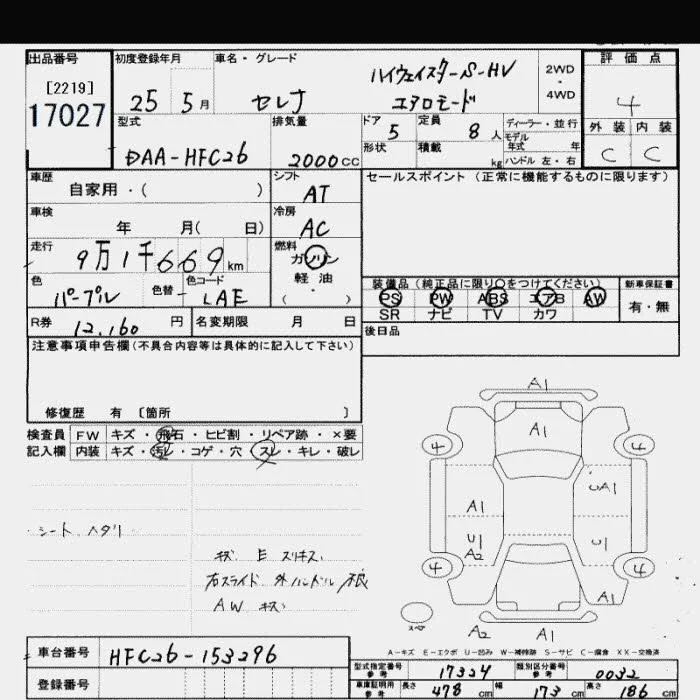 出品番号
[2219]
17027
初度登録年月
25 5月
車名・グレード
セレナ
ハイウェイスターS-HV
エアロモード
2WD
・
4WD
評価点
4
外装 内装
C C
型式
DAA-HFC26
排気量
2000cc
ドア
5
定員
8人
形状
積載
kg
ディーラー・並行
モデル
年式 年
ハンドル 左・右
車歴
自家用・( )
シフト
AT
車検
年 月( 日)
冷房
AC
走行
9万1千669km
燃料
ガソリン
軽油
( ・ )
色
パープル
色替
カラーコード
LAE
R券
12,160円
名変期限 月 日
セールスポイント(正常に機能するものに限ります)
装備品(純正品に限り○をつけてください)
PS PW ABS エアB AW
SR ナビ TV カワ
新車保証書
有・無
後日品
注意事項申告欄(不具合内容等は具体的に記入して下さい)
修復歴 有 〔箇所 〕
検査員
記入欄
FW キズ・飛石・ヒビ割・リペア跡・×要
内装 キズ・汚レ・コゲ・穴・スレ・キレ・破レ
・シート ヘタリ
キズ E スリキズ
右スライド 外ハンドル
AW キズ
A1
A1
4
4
A1
UA1
U1
A2
U1
4
4
A1
スペア
A2
A1
A-キズ E-エクボ U-凹み W-補修跡 S-サビ C-腐食 XX-交換済
車台番号
HFC26-153296
登録番号
型式指定番号
参考
17324
類別区分番号
参考
0032
車庫証明用
参考
長さ 478cm
幅 173cm
高さ 186cm